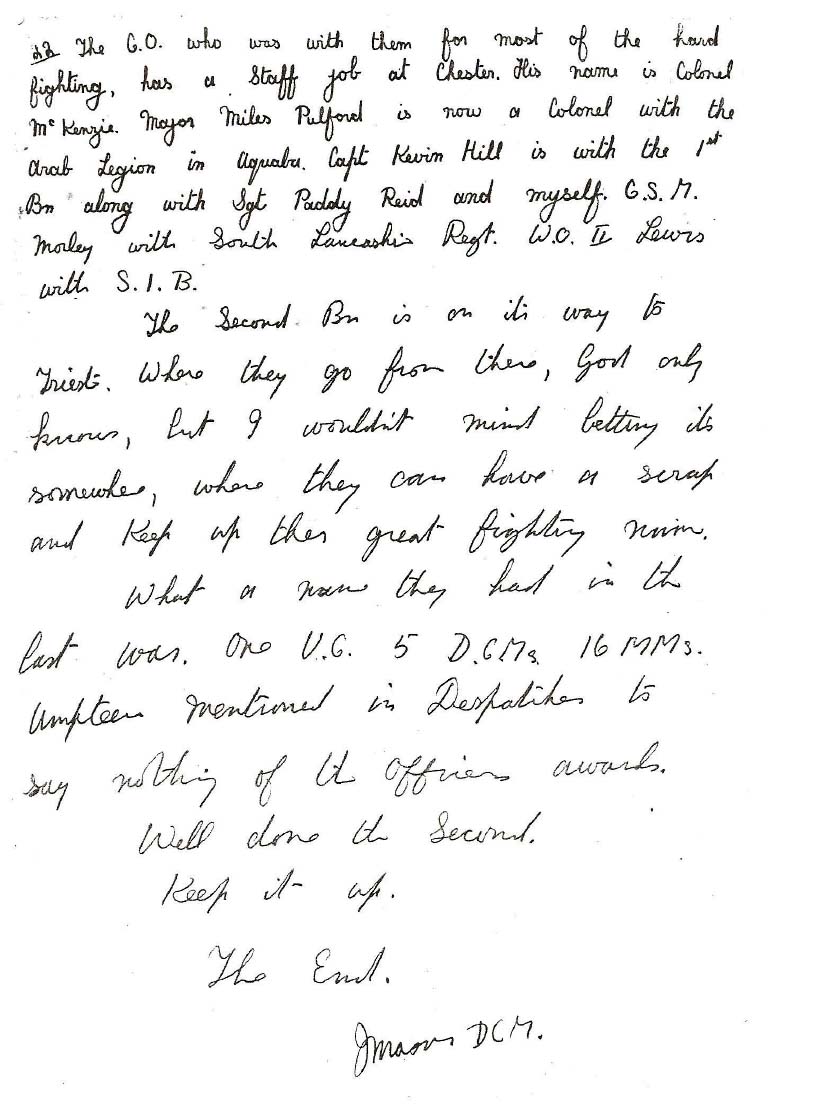 22 The C.O. who was with them for most of the hard
fighting, has a Staff job at Chester. His name is Colonel
Mc Kenzie. Major Miles Pulford is now a Colonel with the
Arab Legion in Aquaba. Capt Kevin Hill is with the 1st
Bn along with Sgt Paddy Reid and myself. C.S.M.
Morley with South Lancashire Regt. W.O. II Lewis
with S.I.B.
The Second Bn is on its way to
Triest. Where they go from there, God only
knows, but I wouldn't mind betting its
somewhere, where they can have a scrap
and Keep up their great fighting name.
What a name they had in the
last war. One V.C. 5 D.C.Ms. 16 MMs.
Umpteen mentioned in Despatches to
say nothing of the Officers awards.
Well done the Second.
Keep it up.
The End.
DCM.